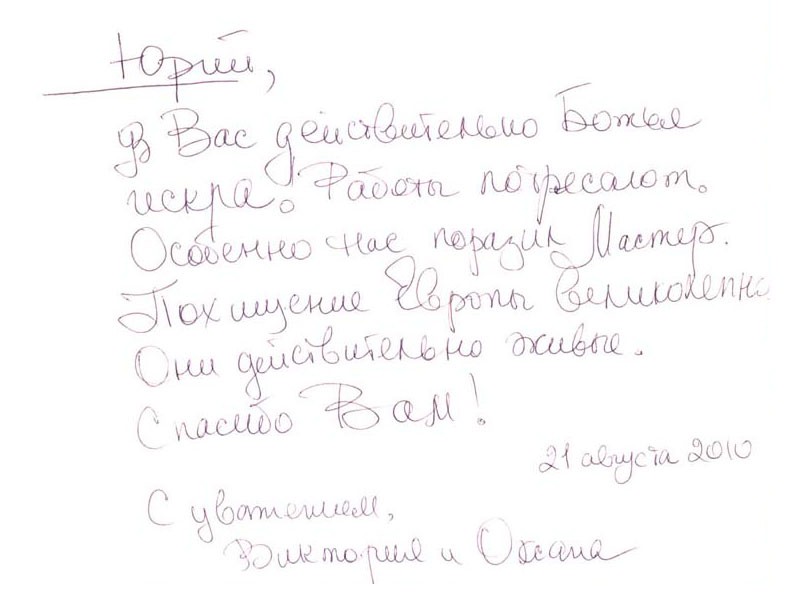 Юрий,
В Вас действительно Божья
искра! Работы потрясают.
Особенно нас поразил Мастер.
Похищение Европы великолепно
Они действительно живые.
Спасибо Вам!
21 августа 2010
С уважением,
Виктория и Оксана